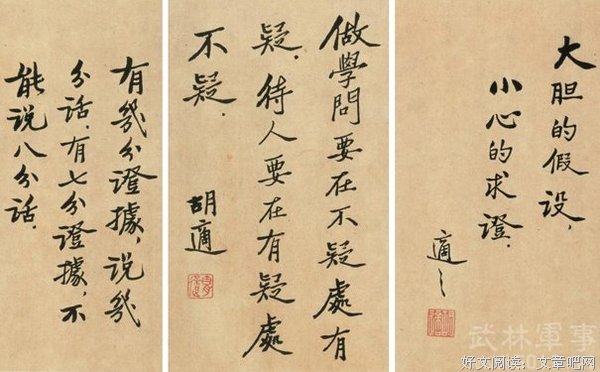 大胆的假设，
小心的求證．
適之
做學問要在不疑處有
疑．待人要在有疑處
不疑．
胡適
有幾分證據，說幾
分話．有七分證據，不
能说八分話．
武林軍事
好文阅读：文章吧网